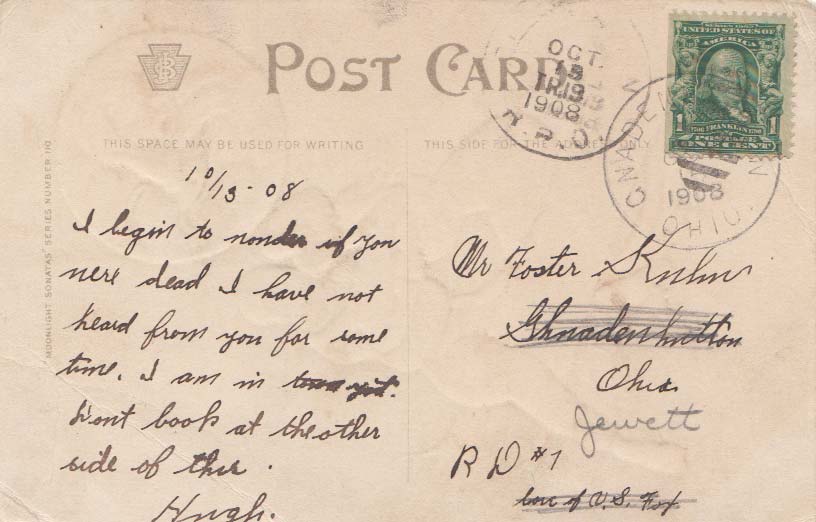 POST CARD
THIS SPACE MAY BE USED FOR WRITING
THIS SIDE FOR THE ADDRESS ONLY
"MOONLIGHT SONATAS" SERIES NUMBER 110
OCT.
19
TR19
1908
R.P.O.
SERIES 1902
UNITED STATES OF
AMERICA
1 FRANKLIN 1
POSTAGE
ONE CENT
GNADEN
1908
OHIO.
10/13-08
I begin to wonder if you
were dead I have not
heard from you for some
time. I am in town yet.
Dont look at the other
side of this.
Hugh.
Mr Foster Kuhn
Ghnadenhutton
Ohio
Jewett
R D #1
care of U.S. Fox